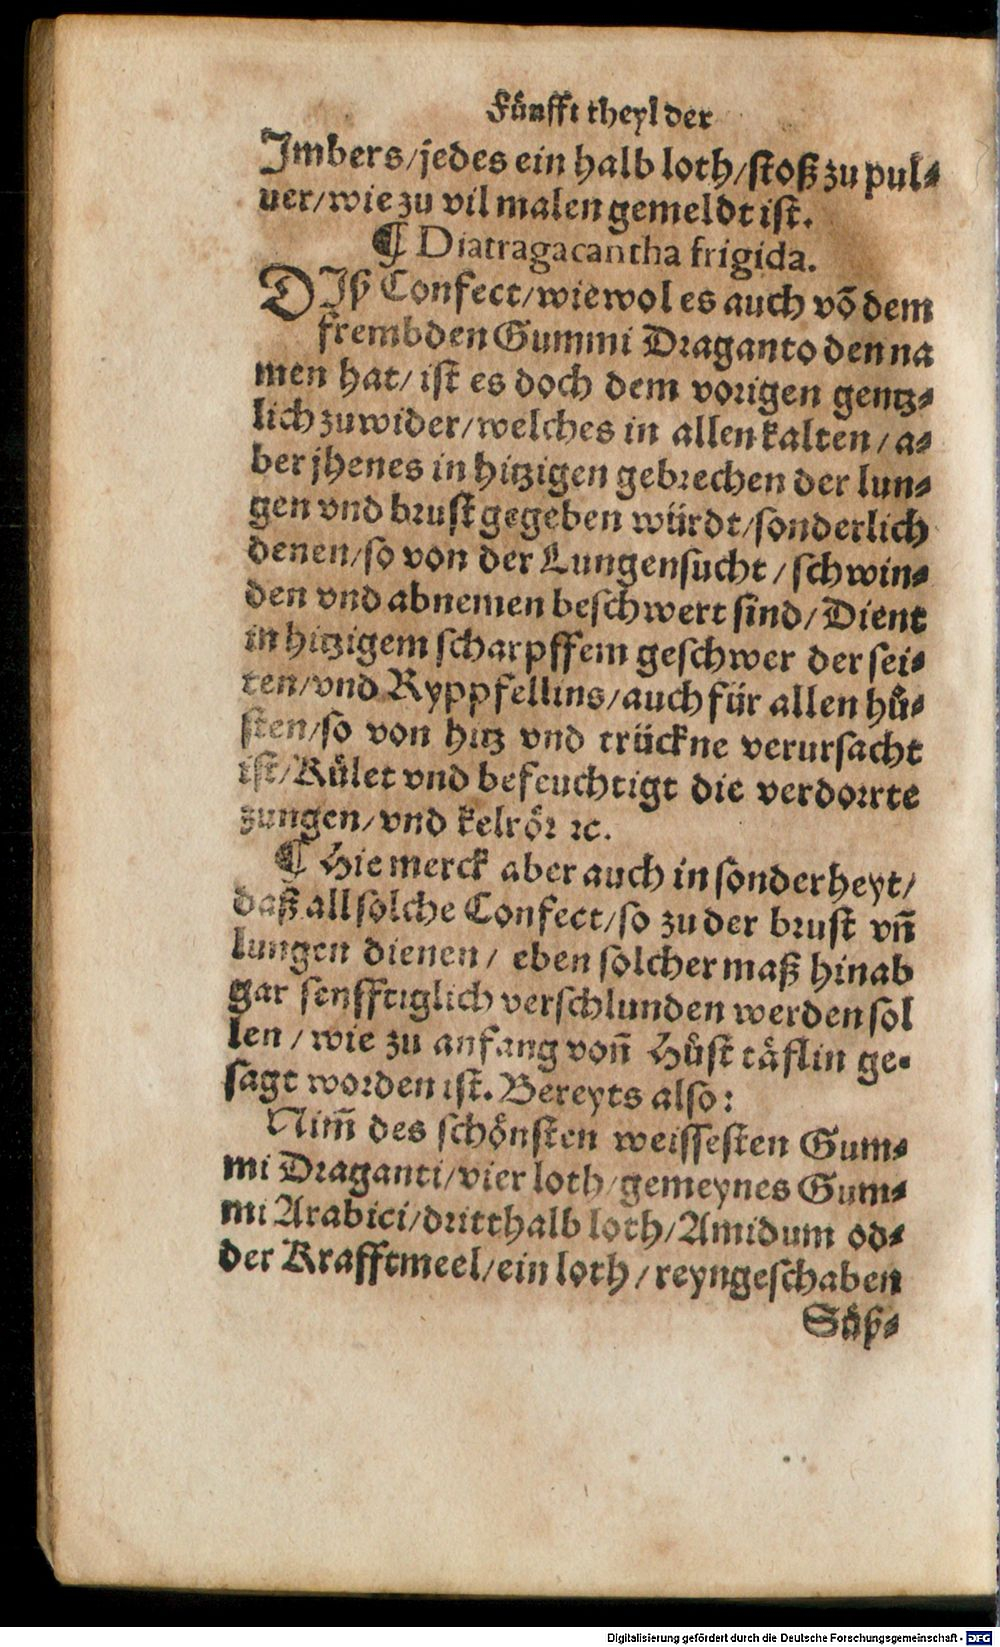 Fünfft theyl der
Imbers/jedes ein halb loth/stoß zu pul⸗
uer/wie zu vil malen gemeldt ist.
¶ Diatragacantha frigida.
DIß Confect/wiewol es auch võ dem
frembden Gummi Draganto den na
men hat/ ist es doch dem vorigen gentz⸗
lich zuwider/welches in allen kalten/ a⸗
ber jhenes in hitzigen gebrechen der lun⸗
gen vnd brust gegeben würdt/sonderlich
denen/so von der Lungensucht/ schwin⸗
den vnd abnemen beschwert sind/ Dient
in hitzigem scharpffem geschwer der sei⸗
ten/vnd Ryppfellins/auch für allen hů⸗
sten/so von hitz vnd trückne verursacht
ist/Kület vnd befeuchtigt die verdorrte
zungen/vnd kelrör ꝛc.
¶ Hie merck aber auch in sonderheyt/
daß all solche Confect/so zu der brust vñ
lungen dienen/ eben solcher maß hinab
gar senfftiglich verschlunden werden sol
len/ wie zu anfang von̄ Hůst täflin ge⸗
sagt worden ist. Bereyts also:
Nim̄ des schönsten weissesten Gum⸗
mi Draganti/vier loth/gemeynes Gum⸗
mi Arabici/dritthalb loth/Amidum od⸗
der Krafftmeel/ein loth/reyngeschaben
Söß⸗
Digitalisierung gefördert durch die Deutsche Forschungsgemeinschaft - DFG